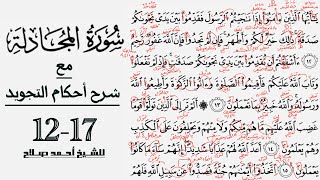 سُورَة المُجَادلَة
مع
شرح أحكام التجويد
12-17
للشيخ أحمد صلاح
يَٰٓأَيُّهَا ٱلَّذِينَ ءَامَنُوٓاْ إِذَا نَٰجَيۡتُمُ ٱلرَّسُولَ فَقَدِّمُواْ بَيۡنَ يَدَيۡ نَجۡوَىٰكُمۡ
صَدَقَةٗۚ ذَٰلِكَ خَيۡرٞ لَّكُمۡ وَأَطۡهَرُۚ فَإِن لَّمۡ تَجِدُواْ فَإِنَّ ٱللَّهَ غَفُورٞ رَّحِيمٌ
١٢ ءَأَشۡفَقۡتُمۡ أَن تُقَدِّمُواْ بَيۡنَ يَدَيۡ نَجۡوَىٰكُمۡ صَدَقَٰتٖۚ فَإِذۡ لَمۡ تَفۡعَلُواْ
وَتَابَ ٱللَّهُ عَلَيۡكُمۡ فَأَقِيمُواْ ٱلصَّلَوٰةَ وَءَاتُواْ ٱلزَّكَوٰةَ وَأَطِيعُواْ ٱللَّهَ
وَرَسُولَهُۥۚ وَٱللَّهُ خَبِيرُۢ بِمَا تَعۡمَلُونَ ١٣ أَلَمۡ تَرَ إِلَى ٱلَّذِينَ تَوَلَّوۡاْ قَوۡمًا
غَضِبَ ٱللَّهُ عَلَيۡهِم مَّا هُم مِّنكُمۡ وَلَا مِنۡهُمۡ وَيَحۡلِفُونَ عَلَى ٱلۡكَذِبِ
وَهُمۡ يَعۡلَمُونَ ١٤ أَعَدَّ ٱللَّهُ لَهُمۡ عَذَابٗا شَدِيدًاۖ إِنَّهُمۡ سَآءَ مَا كَانُواْ
يَعۡمَلُونَ ١٥ ٱتَّخَذُوٓاْ أَيۡمَٰنَهُمۡ جُنَّةٗ فَصَدُّواْ عَن سَبِيلِ ٱللَّهِ فَلَهُمۡ